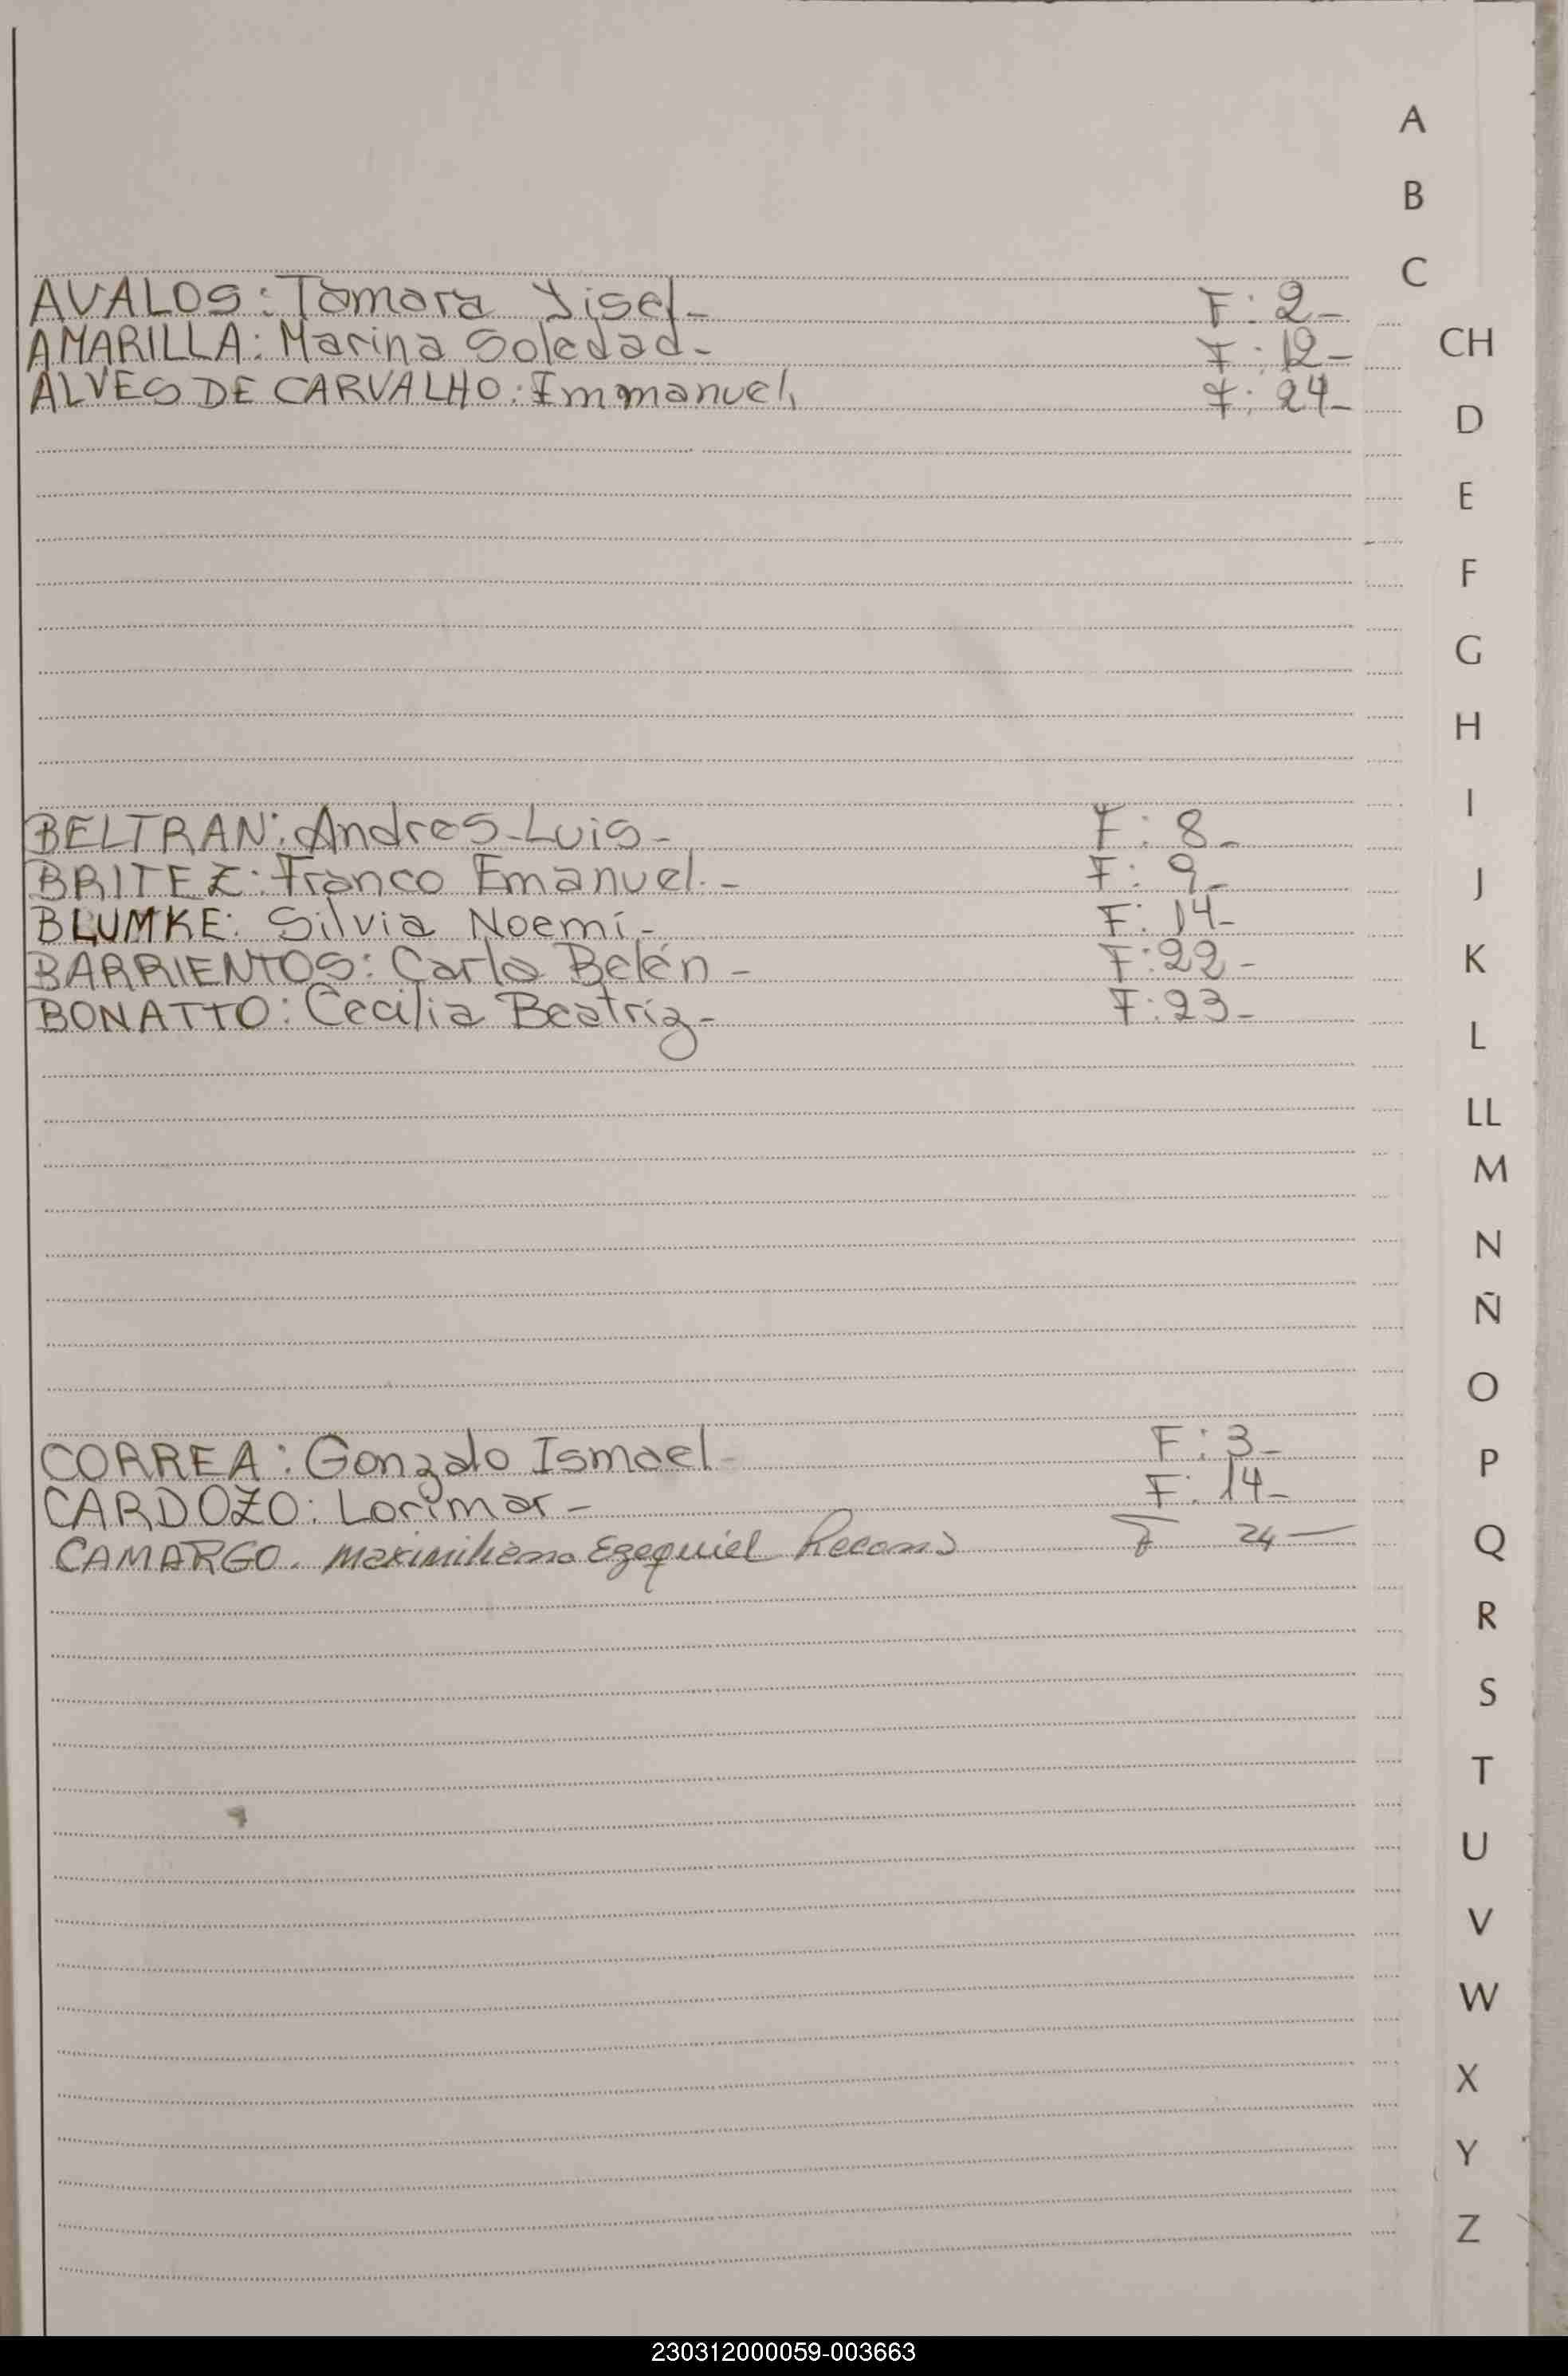 A
B
C
CH
D
E
F
G
H
I
J
K
L
LL
M
N
Ñ
O
P
Q
R
S
T
U
V
W
X
Y
Z
AVALOS: Tamara Yisel- F: 2-
AMARILLA: Marina Soledad- F: 12-
ALVES DE CARVALHO: Emmanuel, F: 24-
BELTRAN: Andres-Luis- F: 8-
BRITEZ: Franco Emanuel.- F: 9-
BLUMKE: Silvia Noemí- F: 14-
BARRIENTOS: Carla Belén- F: 22-
BONATTO: Cecilia Beatríz- F: 23-
CORREA: Gonzalo Ismael- F: 3-
CARDOZO: Lorimar- F: 14-
CAMARGO. Maximiliano Ezequiel F 24-
230312000059-003663